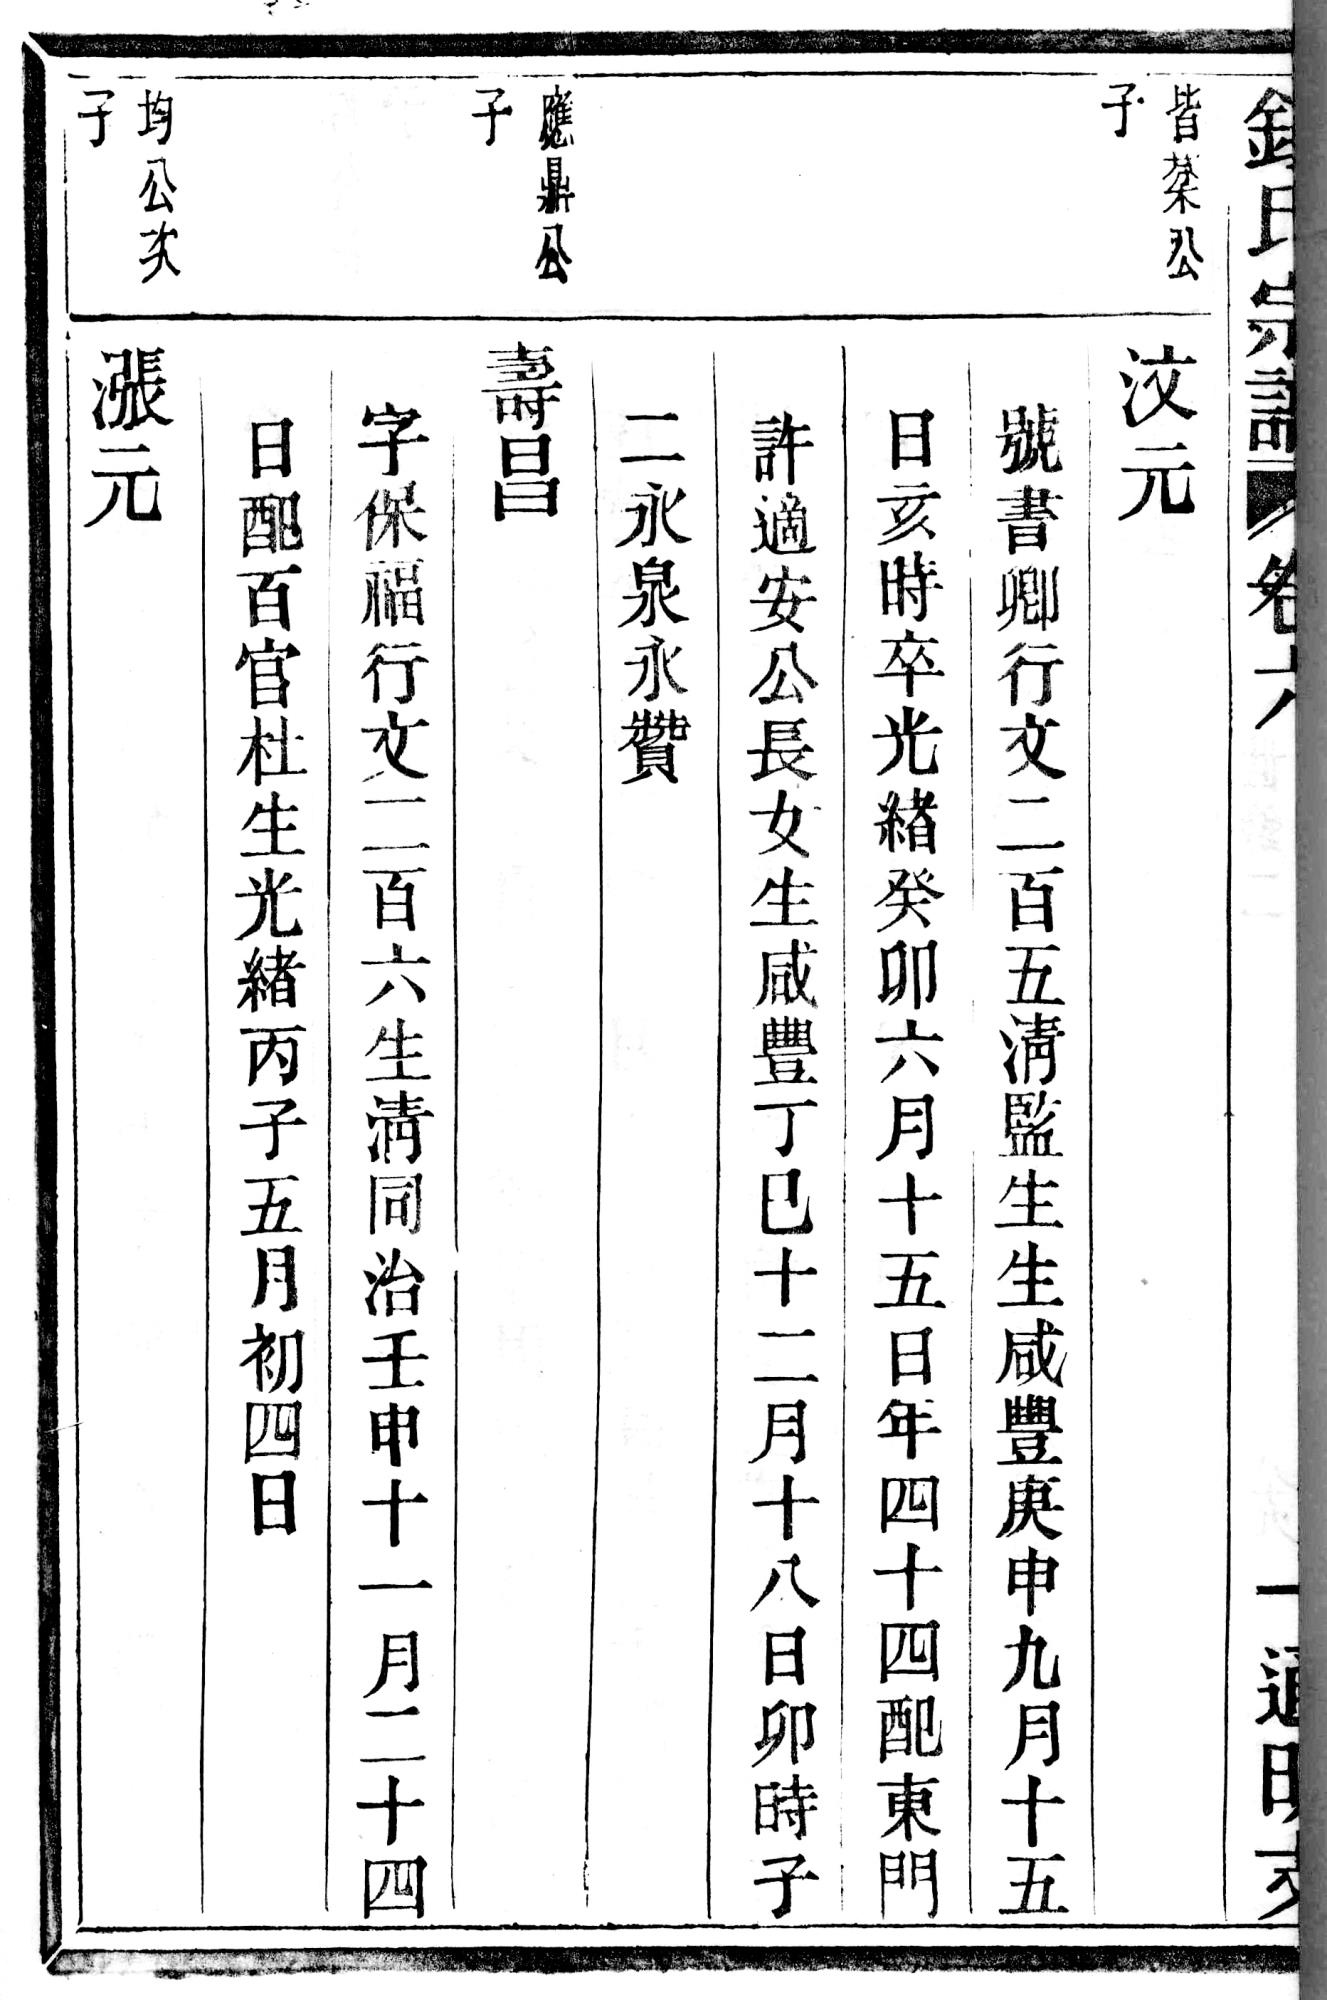 氏宗譜 卷六
通明支
皆榮公
子
汶元
號書卿行文二百五淸監生生咸豐庚申九月十五
日亥時卒光緒癸卯六月十五日年四十四配東門
許適安公長女生咸豐丁巳十二月十八日卯時子
二永泉永贊
應鼎公
子
壽昌
字保福行文二百六生淸同治壬申十一月二十四
日配百官杜生光緒丙子五月初四日
均公次
子
漲元